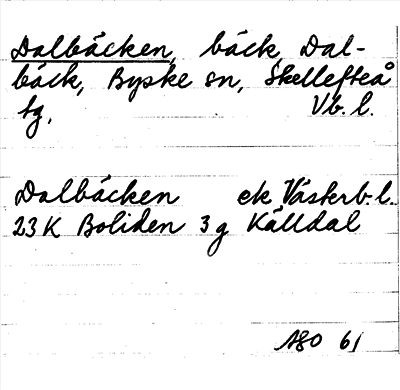 Dalbäcken, bäck, Dal-
bäck, Byske sn, Skellefteå
tg, Vb. l.
Dalbäcken ek Västerb. l.
23 K Boliden 3 g Källdal
ABO 61